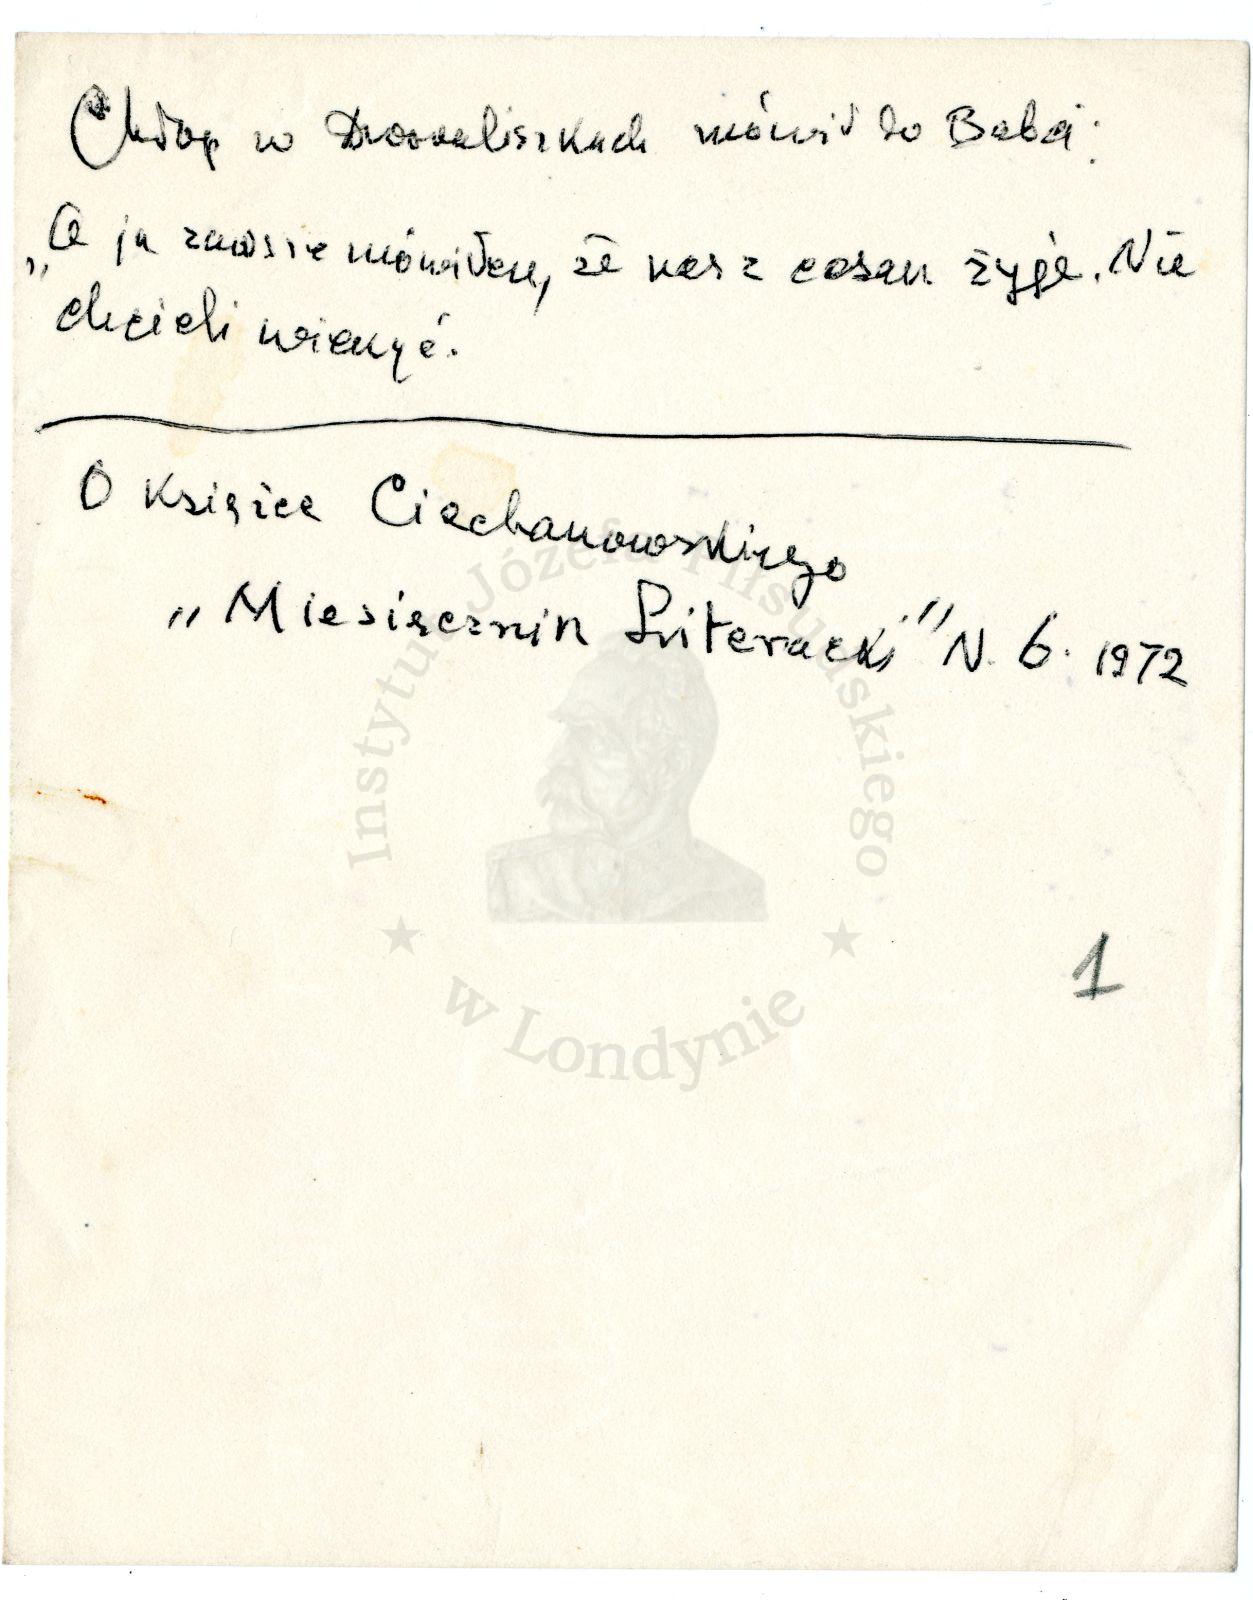 Chłop w mówił do Babci:
„A ja zawsze mówiłem, że nasz żyje. Nie
chcieli wierzyć.
O książce Ciechanowskiego
„Miesięcznik Literacki" N. 6. 1972
Instytut Józefa Piłsudskiego
w Londynie
1